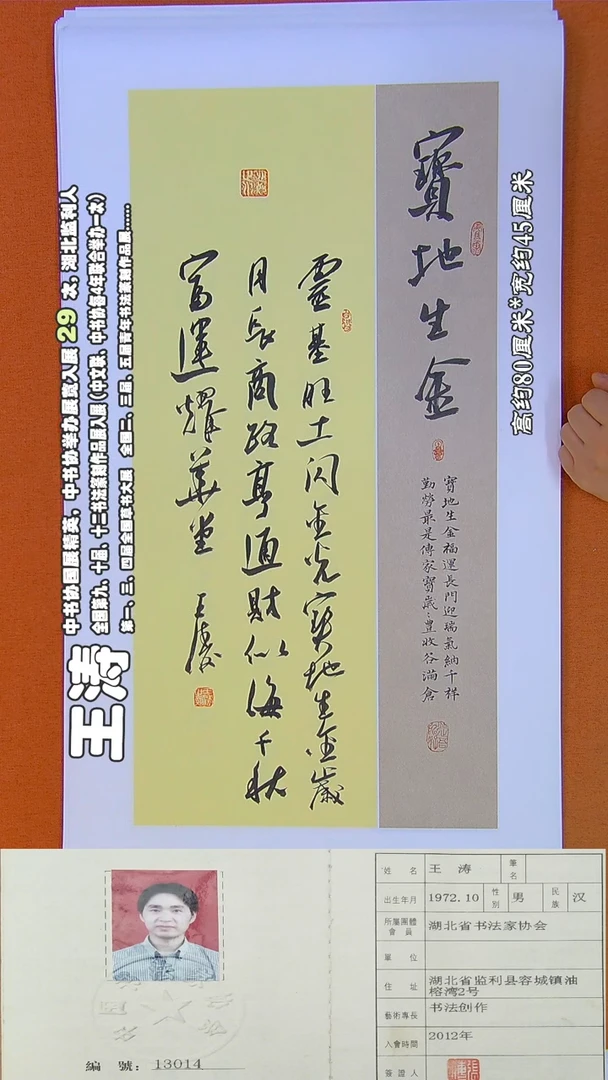 王涛
中书协国展精英，中书协举办展赛入展 29 次，湖北监利人
全国第九、十届、十二书法篆刻作品展入展（中文联、中书协每4年联合举办一次）
高约80厘米*宽约45厘米
寶地生金
寶地生金福運長門迎瑞氣納千祥
勤勞最是傳家寶歲〻豐收谷滿倉
靈基旺土闪金光寶地生金歲
月长商路亨通財似海千秋
富運耀華堂 王涛
編 號：13014
姓 名 王 涛 筆名
出生年月 1972.10 性別 男 民族 汉
所屬團體會員 湖北省书法家协会
單 位
住 址 湖北省监利县容城镇油榕湾2号
藝術專長 书法创作
入會時間 2012年
簽證人